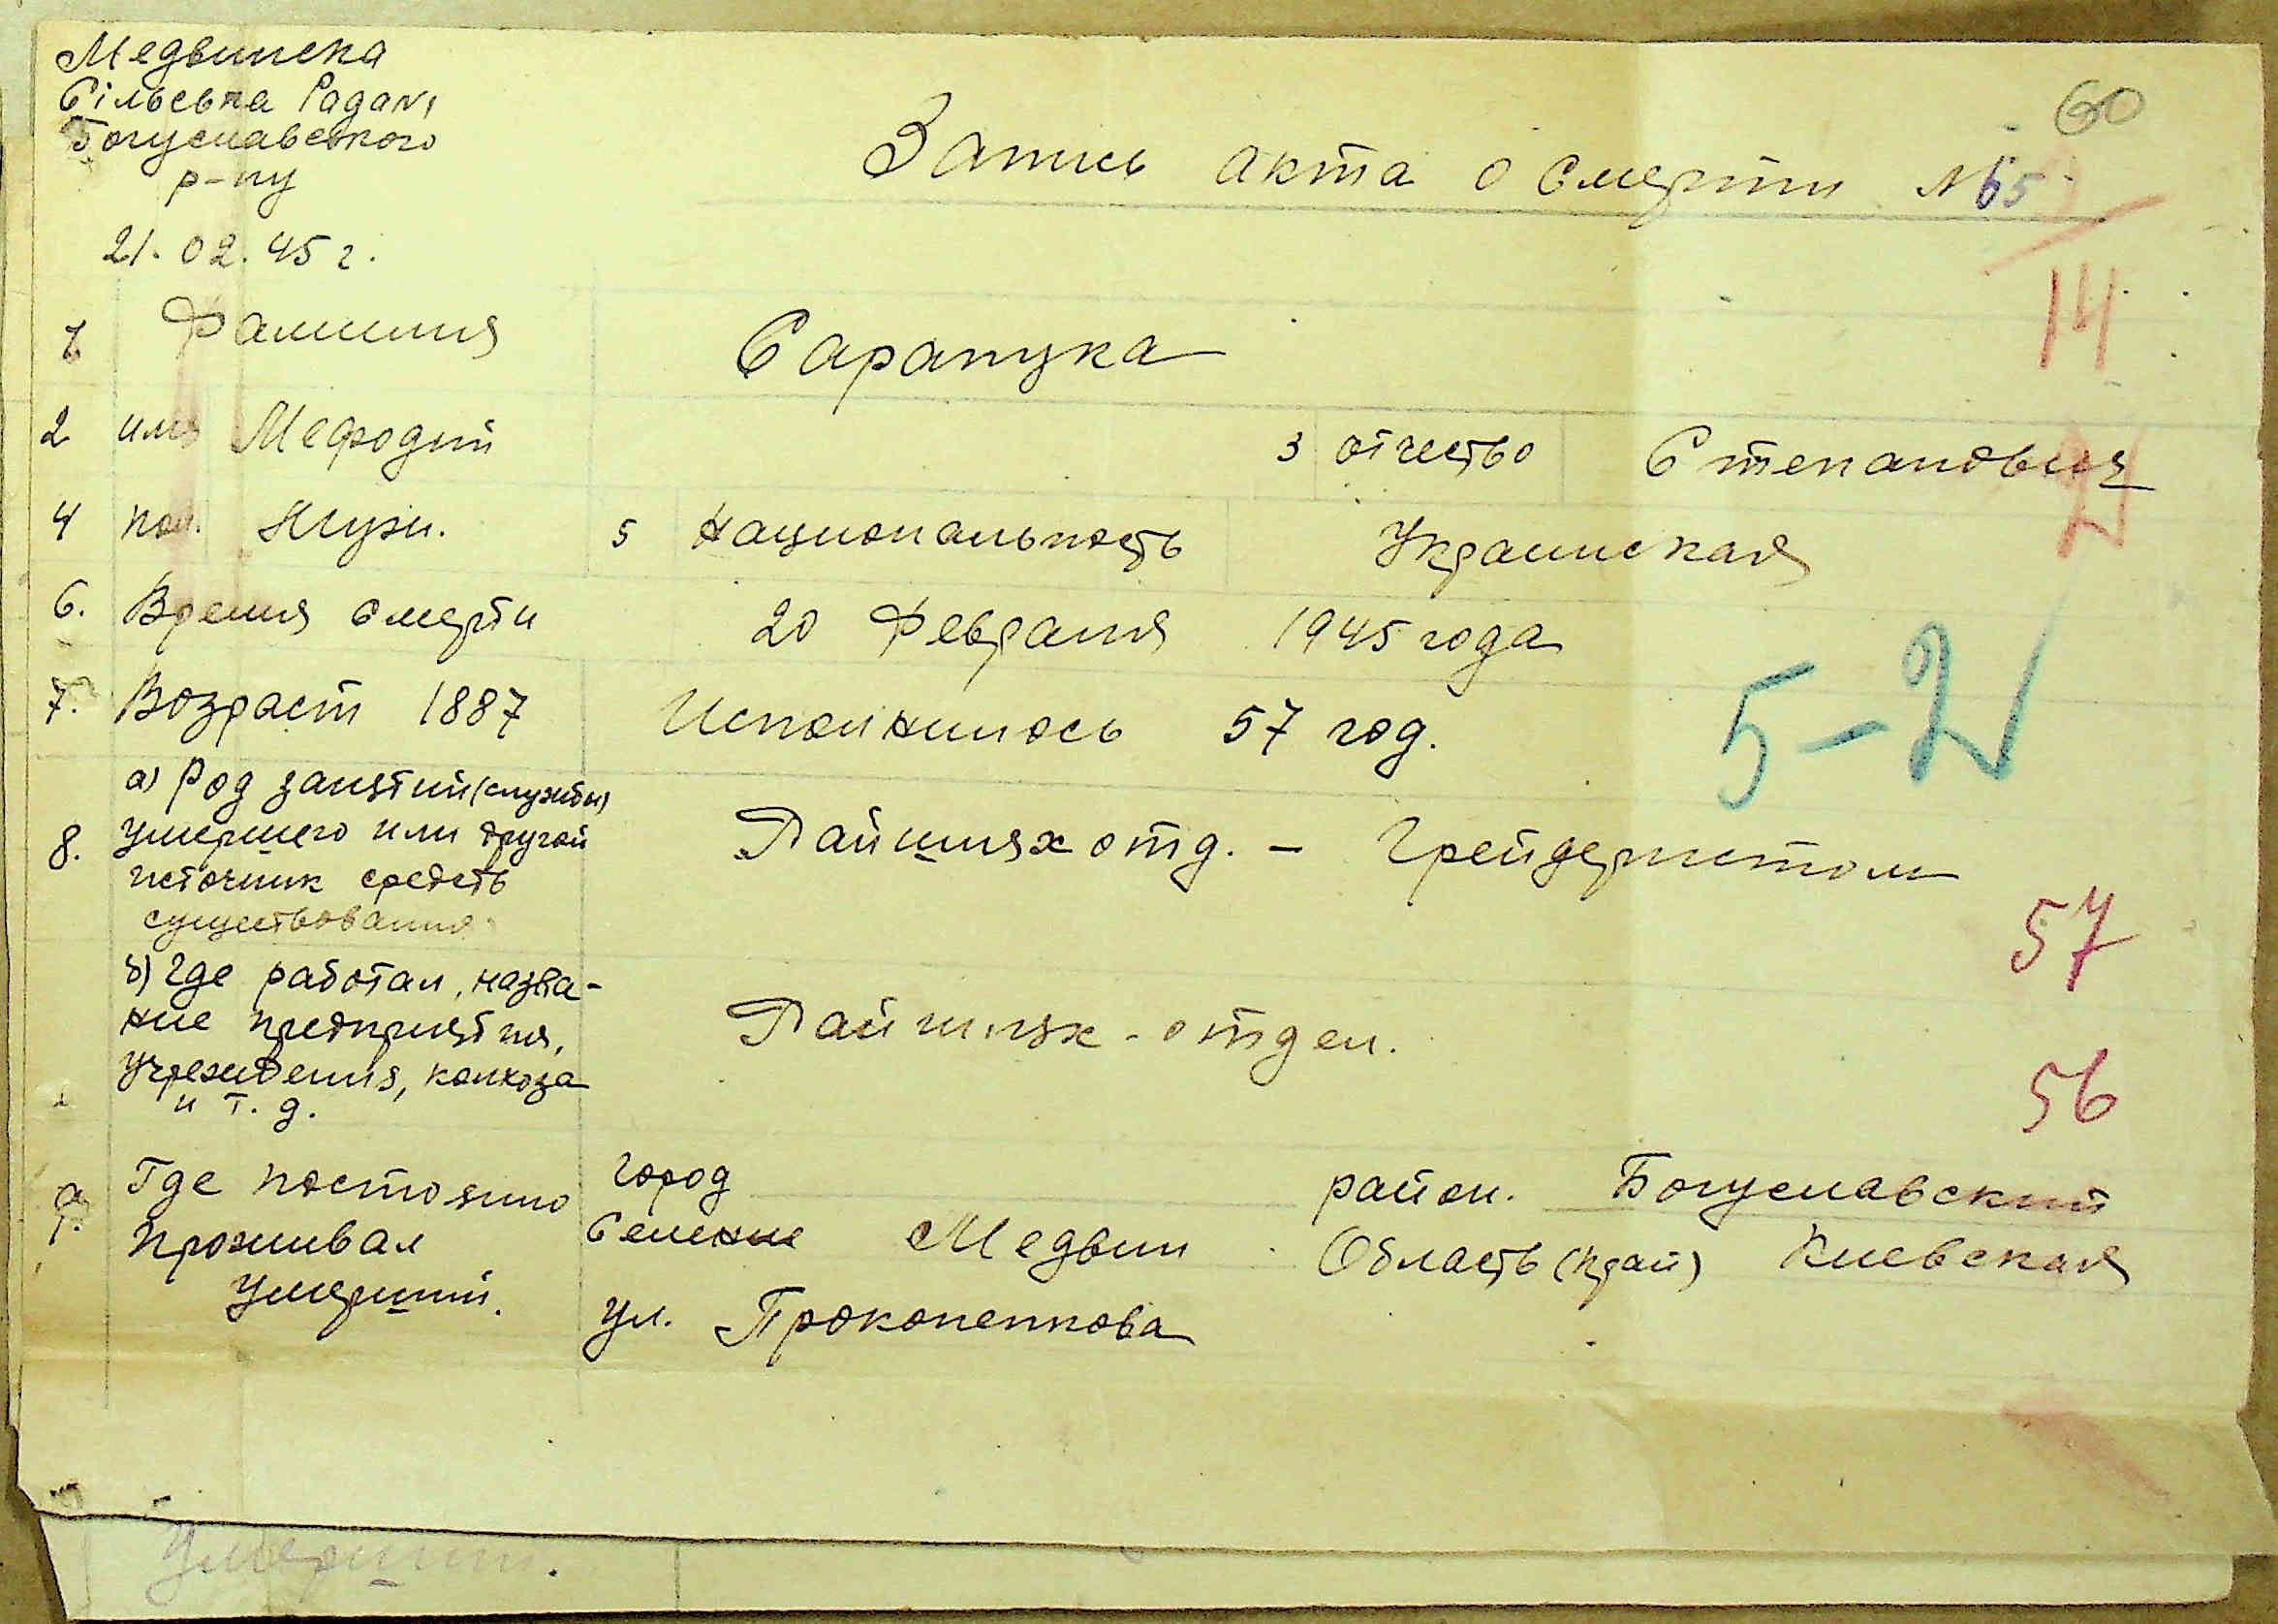 Медвинска
Сільська Рада №1
Богуславського
р-ну
21.02.45 г.
60
Запись акта о смерти №65
14
1 Фамилия Сарапука
2 имя Мефодий 3 отчество Степанович
4 пол. Мужн. 5 Национальность Украинская
6. Время смерти 20 Февраля 1945 года
7. Возраст 1887 Исполнилось 57 год.
5-2
8. а) Род занятий (службы)
умершего или другой
источник средств
существования
Райшляхотд. - Грейдеристом
57
б) Где работал, назва-
ние предприятия,
учреждения, колхоза
и т. д.
Райшлях-отдел.
56
9. Где постоянно
проживал
умерший.
город
Селение Медвин
район. Богуславский
Область (край) Киевская
ул. Прокопенкова
Умерший.